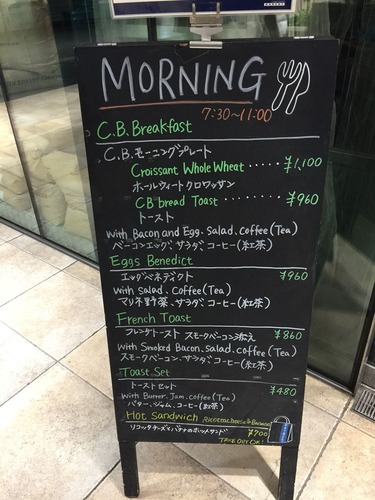 MORNING
7:30~11:00
C.B.Breakfast
C.B.モーニングプレート
Croissant Whole Wheat ‥‥‥ ¥1,100
ホールウィートクロワッサン
CB bread Toast ‥‥‥ ¥960
トースト
with Bacon and Egg. Salad. Coffee (Tea)
ベーコンエッグ、サラダ、コーヒー(紅茶)
Eggs Benedict
エッグベネディクト ¥960
with Salad. Coffee (Tea)
マリネ野菜、サラダ、コーヒー(紅茶)
French Toast
フレンチトースト スモークベーコン添え ¥860
with Smoked Bacon. Salad. coffee (Tea)
スモークベーコン、サラダ、コーヒー(紅茶)
Toast Set
トーストセット ¥480
with Butter. Jam. coffee (Tea)
バター、ジャム、コーヒー(紅茶)
Hot Sandwich Ricotta cheese & Banana
リコッタチーズとバナナのホットサンド ¥700
TAKE OUT OK!